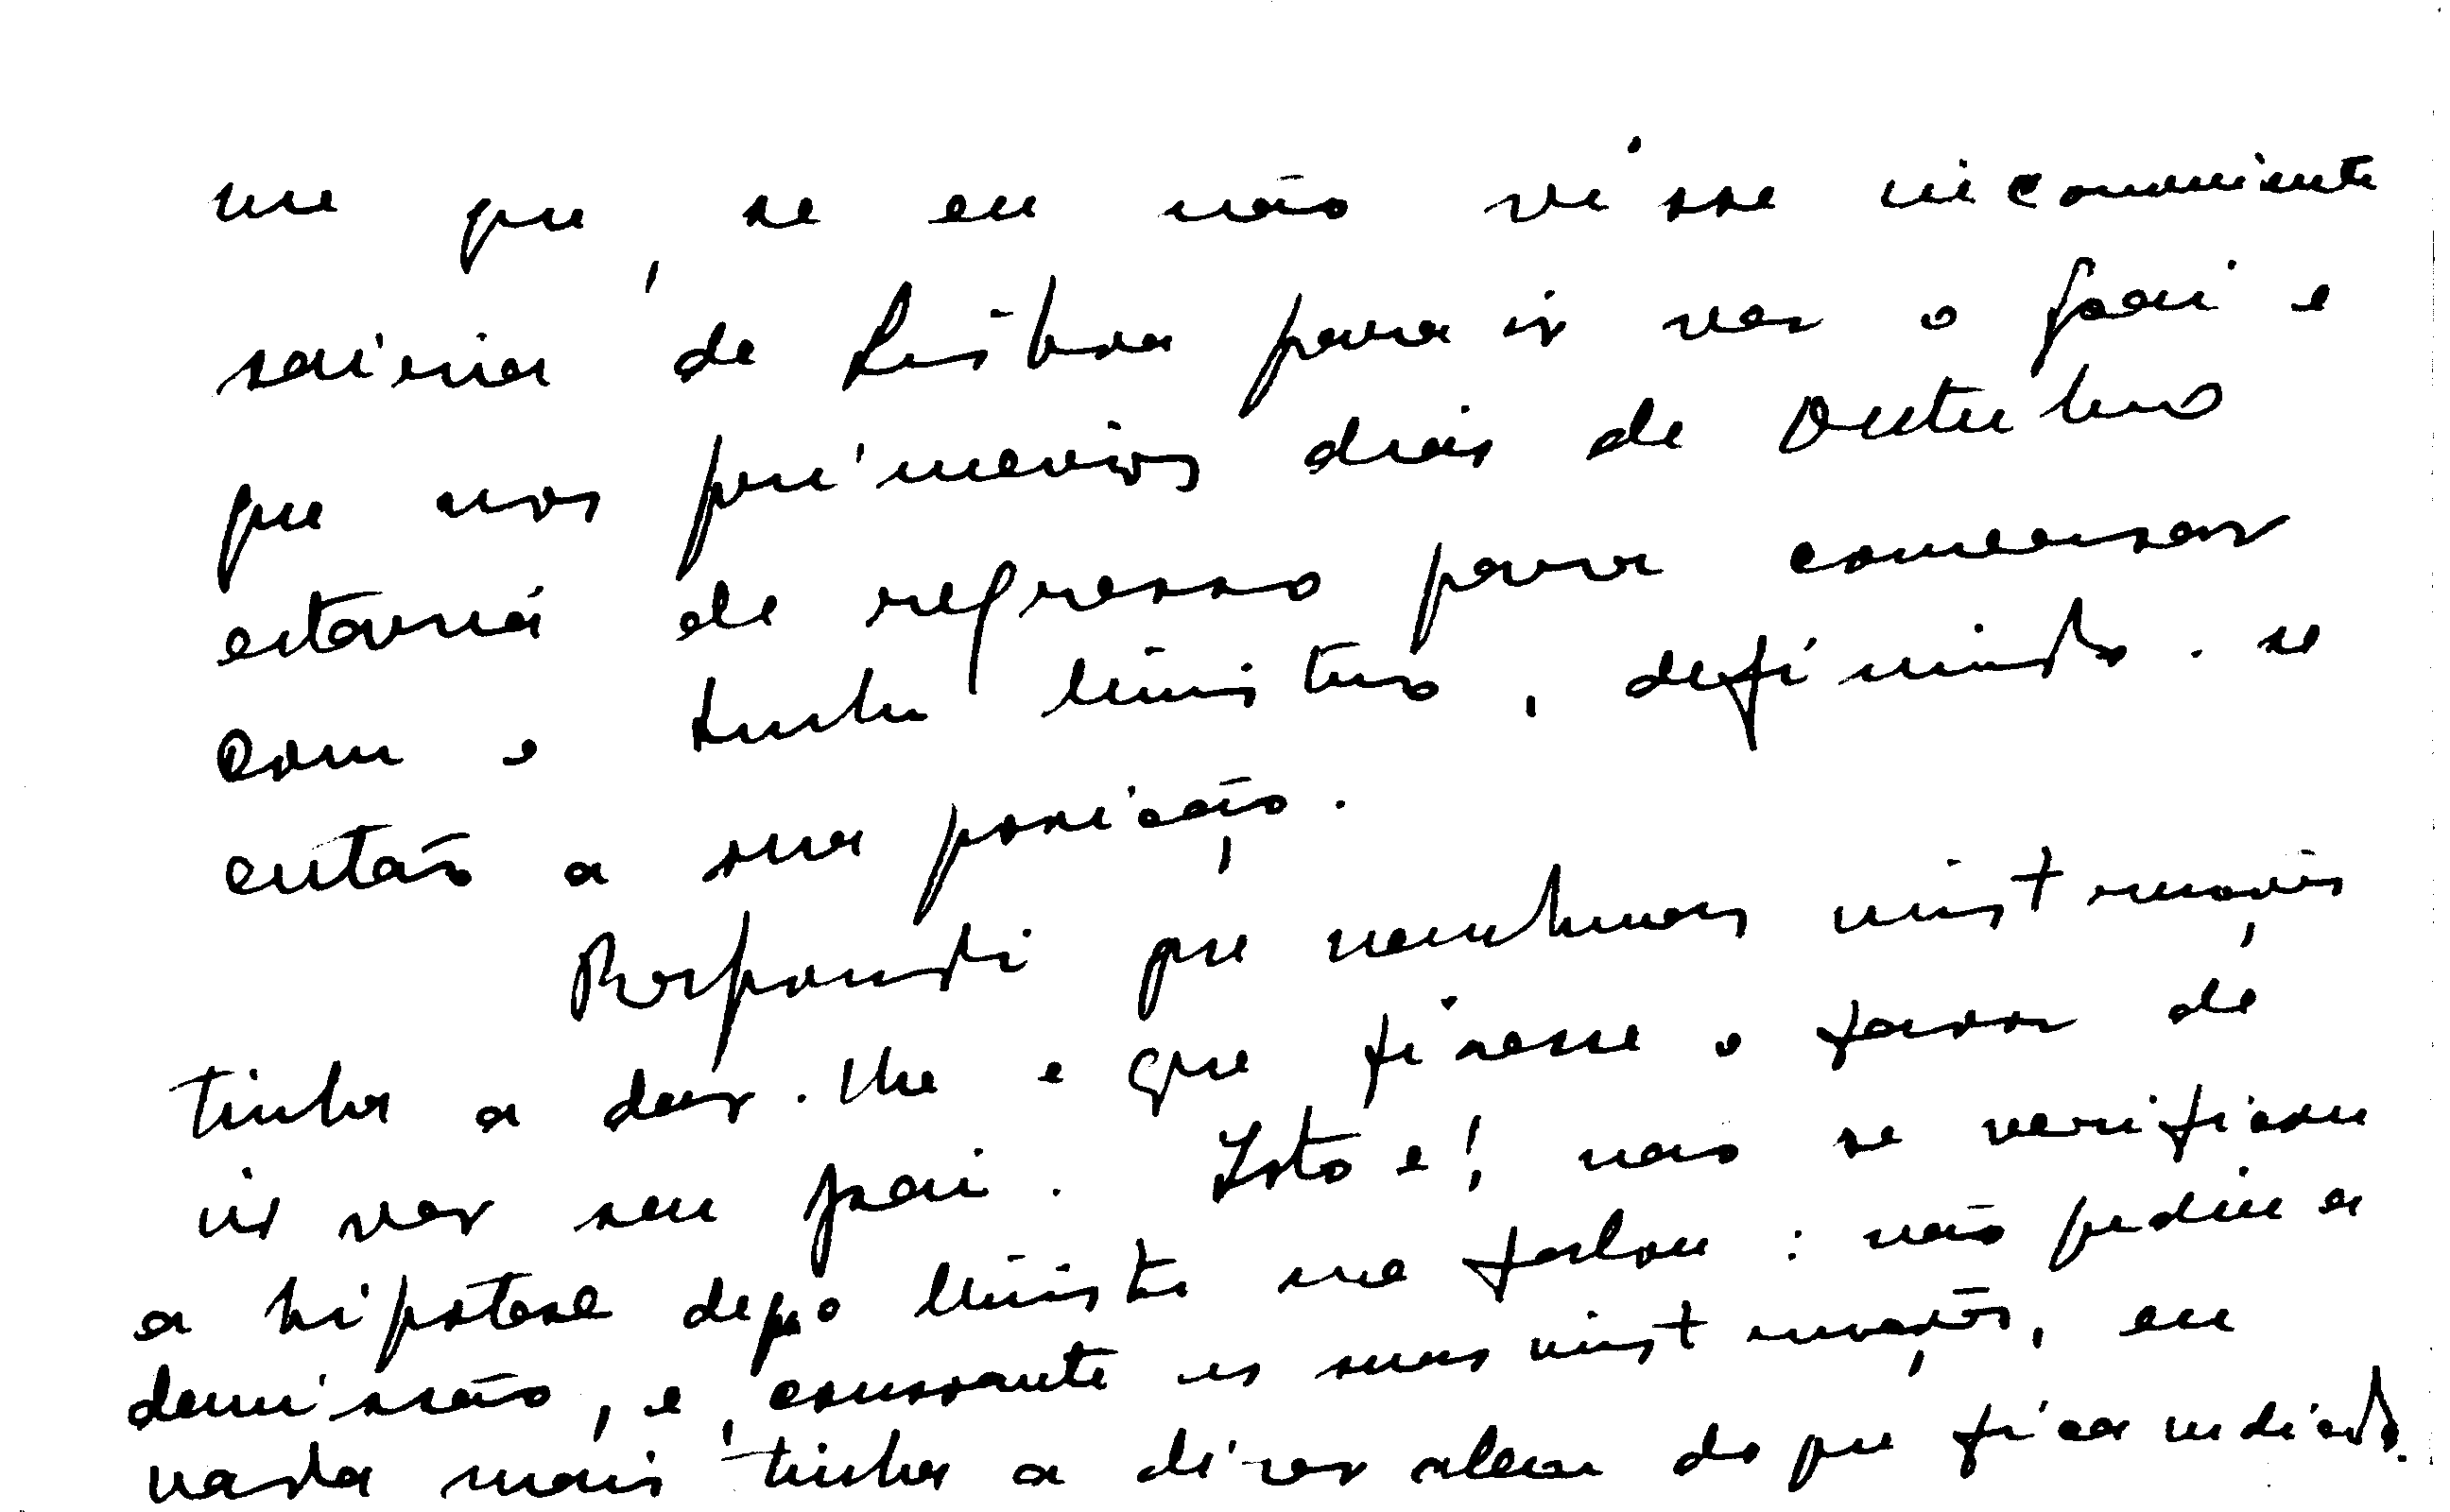 me que, se eu não visse inconveniente
sairia de Lisboa para ir ver o pai e
que nos primeiros dias de Outubro
estaria de regresso para conversar
com o Senhor Ministro, definindo-se
então a sua posição.
Respondi que nenhumas instruções
tinha a dar-lhe e que fizesse o favor de
ir ver seu pai. Isto é, não se verificou
a hipótese de que o Ministro me falou: não pediu a
demissão, e, consoante as suas instruções, eu
nada mais tinha a dizer alem do que fica indicado.